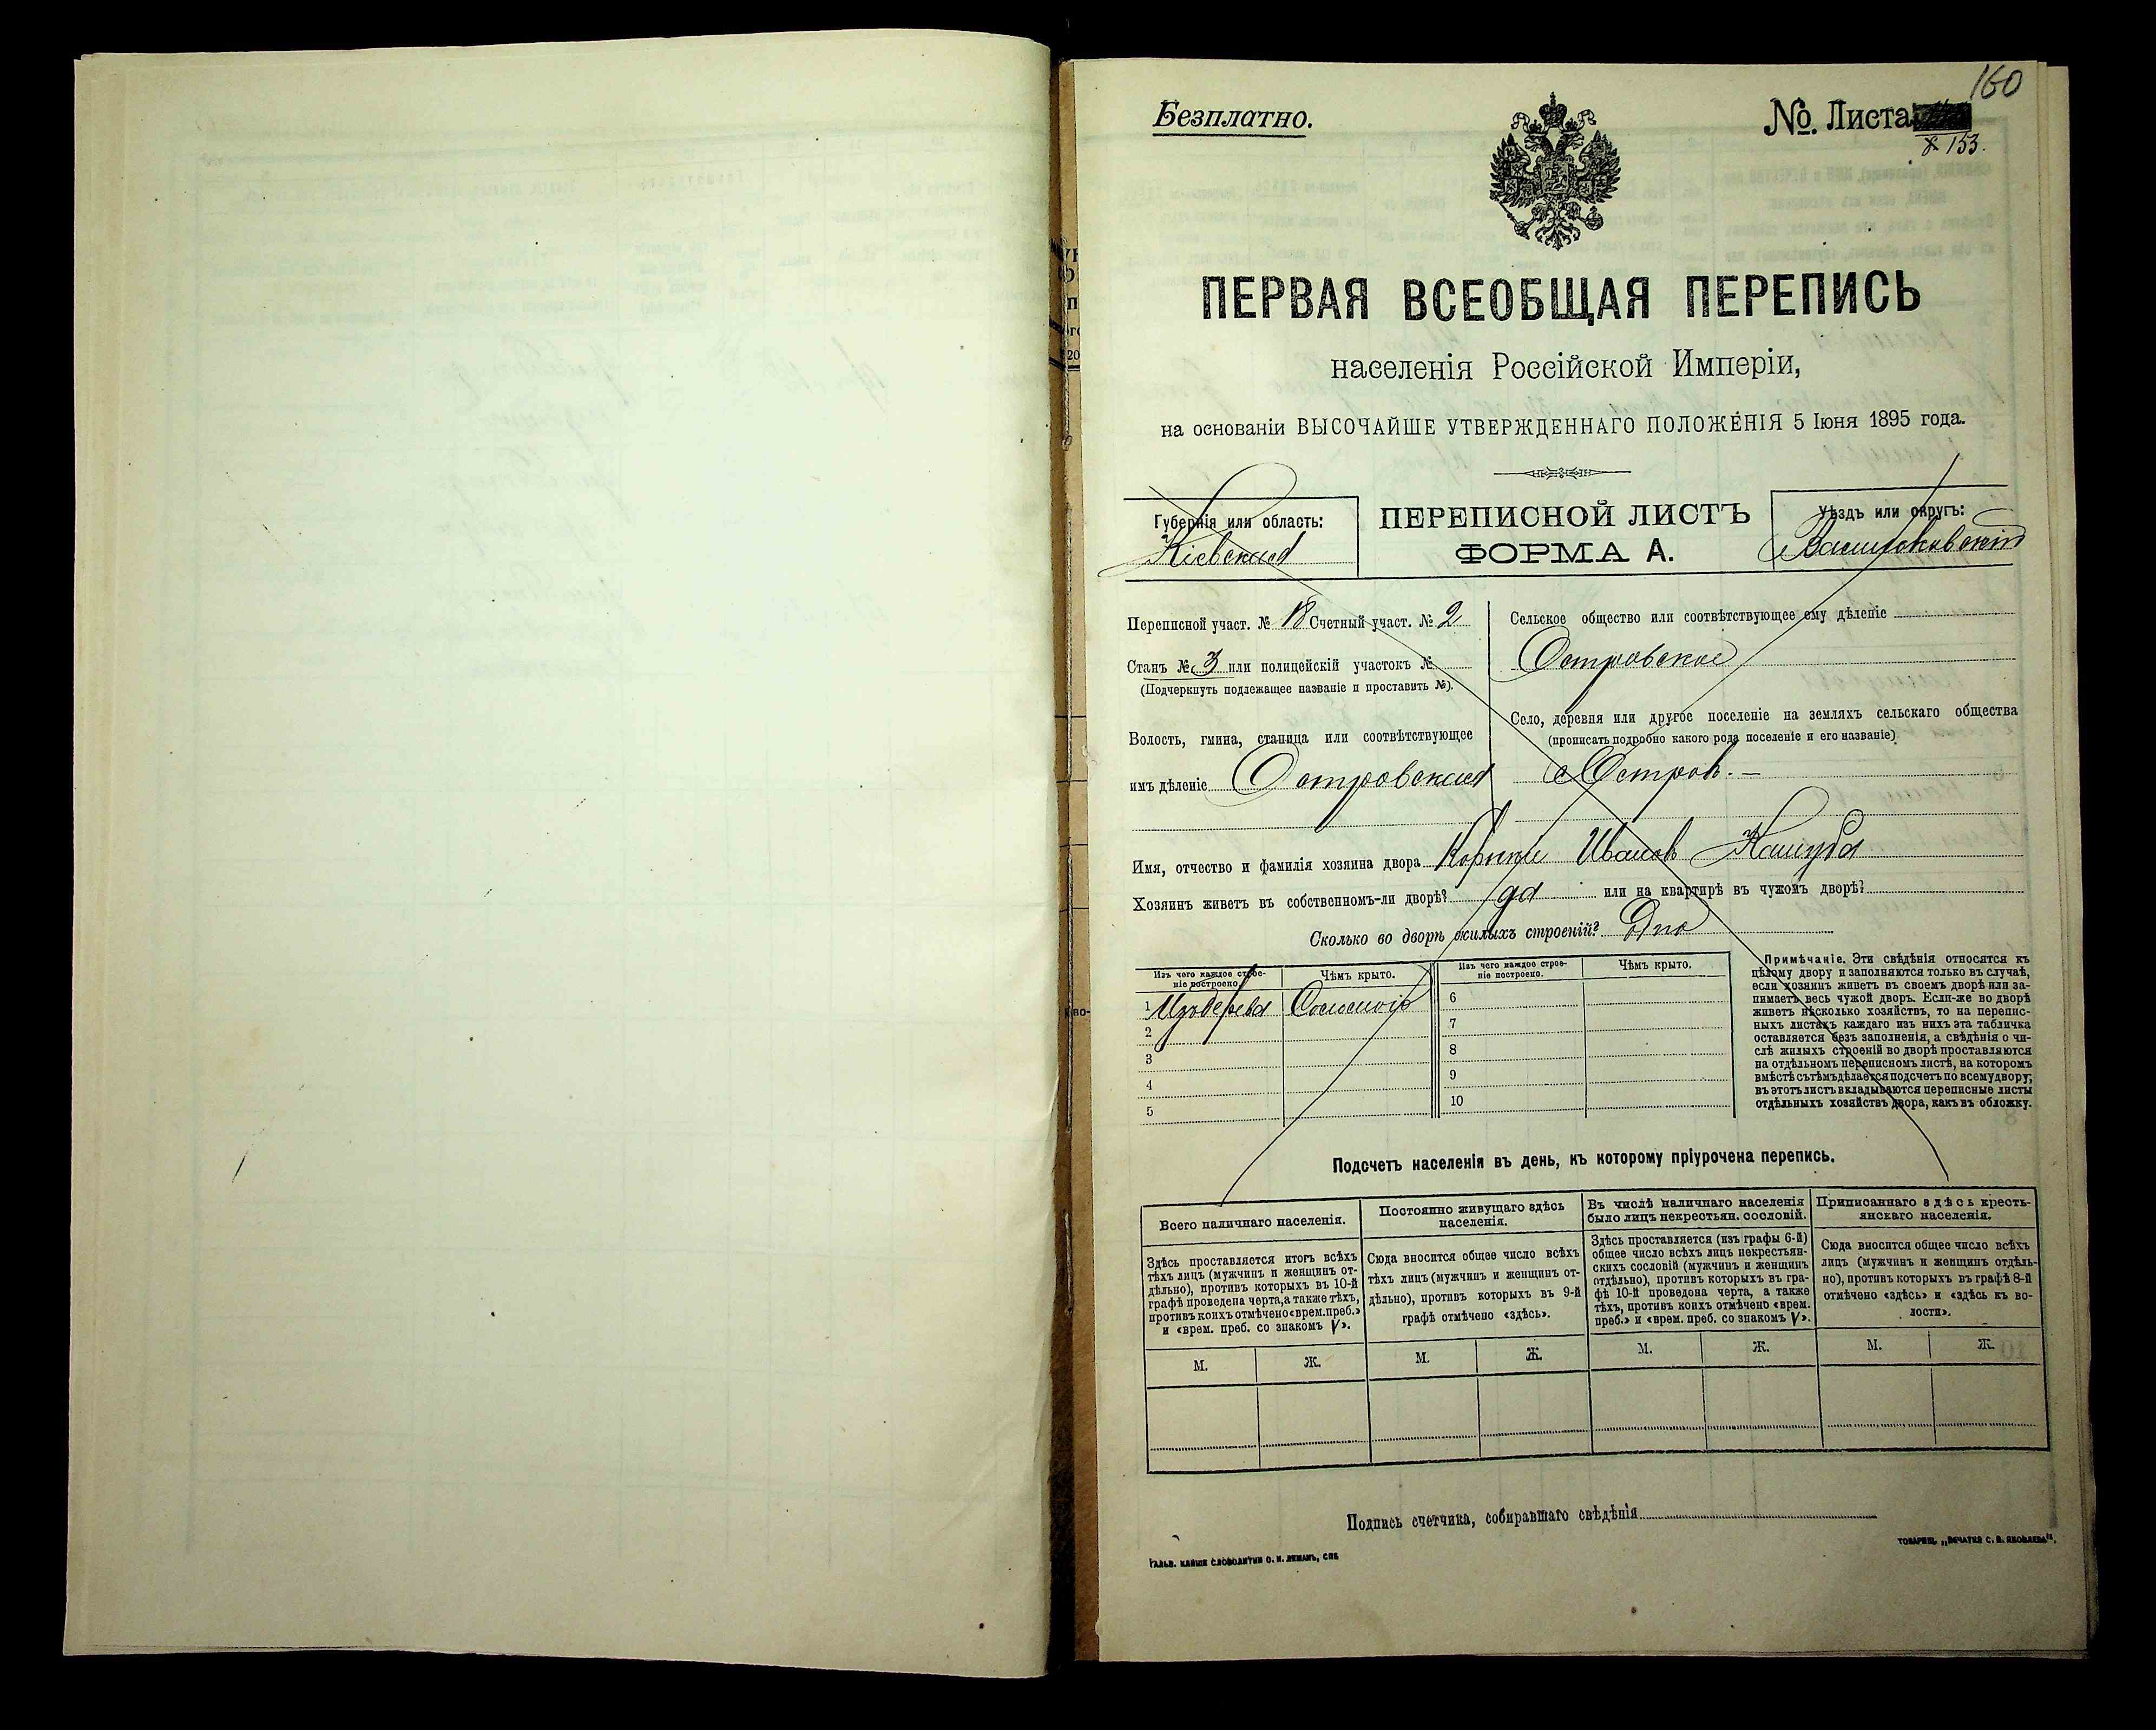 160
Безплатно.
№. Листа
153.
ПЕРВАЯ ВСЕОБЩАЯ ПЕРЕПИСЬ
населенія Россійской Имперіи,
на основаніи ВЫСОЧАЙШЕ УТВЕРЖДЕННАГО ПОЛОЖЕНІЯ 5 Іюня 1895 года.
Губернія или область:
Кіевская
ПЕРЕПИСНОЙ ЛИСТЪ
ФОРМА А.
Уѣздъ или округъ:
Васильковскій
Переписной участ. № 18 Счетный участ. № 2
Станъ № 3 или полицейскій участокъ №
(Подчеркнуть подлежащее названіе и проставить №).
Волость, гмина, станица или соотвѣтствующее
имъ дѣленіе Островская
Сельское общество или соотвѣтствующее ему дѣленіе
Островское
Село, деревня или другое поселеніе на земляхъ сельскаго общества
(прописать подробно какого рода поселеніе и его названіе)
с Остров. —
Имя, отчество и фамилія хозяина двора Иванов Кашуба
Хозяинъ живетъ въ собственномъ-ли дворѣ? да или на квартирѣ въ чужомъ дворѣ?
Сколько во дворѣ жилыхъ строеній? Одно
Изъ чего каждое строе-
ніе построено.
Чѣмъ крыто.
Изъ чего каждое строе-
ніе построено.
Чѣмъ крыто.
1 Изъ дерева Соломою
2
3
4
5
6
7
8
9
10
Примѣчаніе. Эти свѣдѣнія относятся къ
цѣлому двору и заполняются только въ случаѣ,
если хозяинъ живетъ въ своемъ дворѣ или за-
нимаетъ весь чужой дворъ. Если-же во дворѣ
живетъ нѣсколько хозяйствъ, то на перепис-
ныхъ листахъ каждаго изъ нихъ эта табличка
оставляется безъ заполненія, а свѣдѣнія о чи-
слѣ жилыхъ строеній во дворѣ проставляются
на отдѣльномъ переписномъ листѣ, на которомъ
вмѣстѣ съ тѣмъ дѣлается подсчетъ по всему двору;
въ этотъ листъ вкладываются переписные листы
отдѣльныхъ хозяйствъ двора, какъ въ обложку.
Подсчетъ населенія въ день, къ которому пріурочена перепись.
Всего наличнаго населенія.
Здѣсь проставляется итогъ всѣхъ
тѣхъ лицъ (мужчинъ и женщинъ от-
дѣльно), противъ которыхъ въ 10-й
графѣ проведена черта, а также тѣхъ,
противъ коихъ отмѣчено «врем. преб.»
и «врем. преб. со знакомъ V».
М. Ж.
Постоянно живущаго здѣсь
населенія.
Сюда вносится общее число всѣхъ
тѣхъ лицъ (мужчинъ и женщинъ от-
дѣльно), противъ которыхъ въ 9-й
графѣ отмѣчено «здѣсь».
М. Ж.
Въ числѣ наличнаго населенія
было лицъ некрестьян. сословій.
Здѣсь проставляется (изъ графы 6-й)
общее число всѣхъ лицъ некрестьян-
скихъ сословій (мужчинъ и женщинъ
отдѣльно), противъ которыхъ въ гра-
фѣ 10-й проведена черта, а также
тѣхъ, противъ коихъ отмѣчено «врем.
преб.» и «врем. преб. со знакомъ V».
М. Ж.
Приписаннаго здѣсь кресть-
янскаго населенія.
Сюда вносится общее число всѣхъ
лицъ (мужчинъ и женщинъ отдѣль-
но), противъ которыхъ въ графѣ 8-й
отмѣчено «здѣсь» и «здѣсь къ во-
лости».
М. Ж.
Подпись счетчика, собиравшаго свѣдѣнія
ГАЛЬВ. КЛИШЕ СЛОВОЛИТНИ О. И. ЛЕМАНЪ, СПБ
ТОВАРИЩ. „ПЕЧАТНЯ С. П. ЯКОВЛЕВА“.